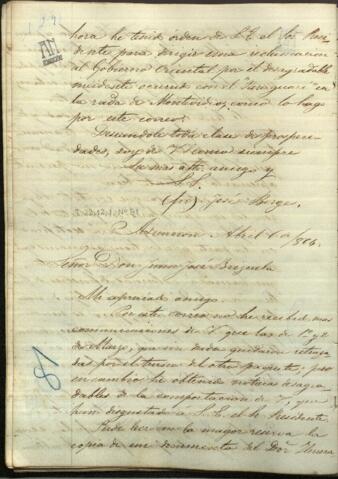 hora he tenido orden de S.E. el Sor Presi-
dente para dirigir una reclamacion
al Gobierno Oriental por el desagradable
incidente ocurrido con el "Paraguari" en
la rada de Montevideo, como lo hago
por este correo.
Deseandole toda clase de prosperi-
dades, soy de V como siempre
Su mas atto amigo y
S. S.
(fir) José Berges.
Asuncion, Abril 6 de 1864.
Señor Don Juan José Brizuela
Mi apreciado amigo.
Por este correo no he recibido mas
comunicaciones de V que las de 1º y 2
de Marzo, que sin duda quedaron retraza-
das por el turno del otro paquete; pero
en cambio he obtenido noticias desagra-
dables de la comportacion de V, que
han disgustado a S.E. el Sr Presidente.
Pude leer en la mayor reserva la
copia de un documento del Dor Herrera